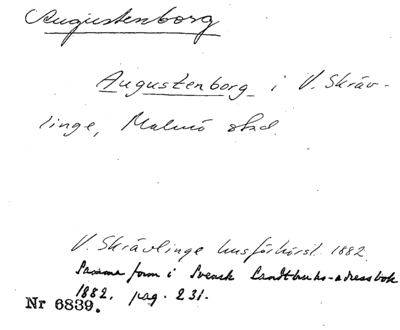 Augustenborg
Augustenborg i V. Skräv-
linge, Malmö stad.
V. Skrävlinge husförhörsl. 1882.
Samma form i Svensk Landtbruks-adressbok
1882, pag. 231.
Nr 6839.